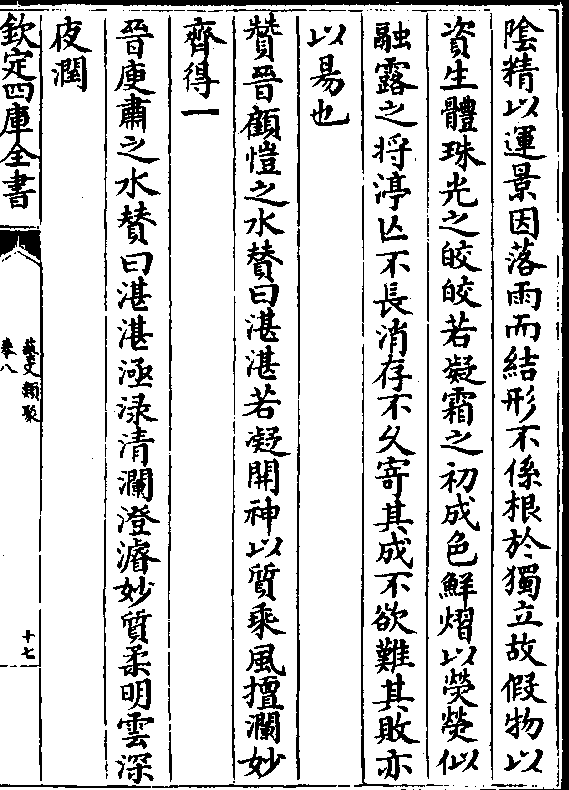 陰精以運景因落雨而結形不係根於獨立故假物以
資生體珠光之皎皎若凝霜之初成色鮮熠以熒熒似
融露之将渟亾不長消存不乆寄其成不欲難其敗亦
以易也
賛晉顧愷之水賛曰湛湛若凝開神以質乘風擅瀾妙
齊得一
晉庾肅之水賛曰湛湛涵渌清瀾澄濬妙質柔明雲深
夜潤
欽定四庫全書
藝文類聚
卷八
十七